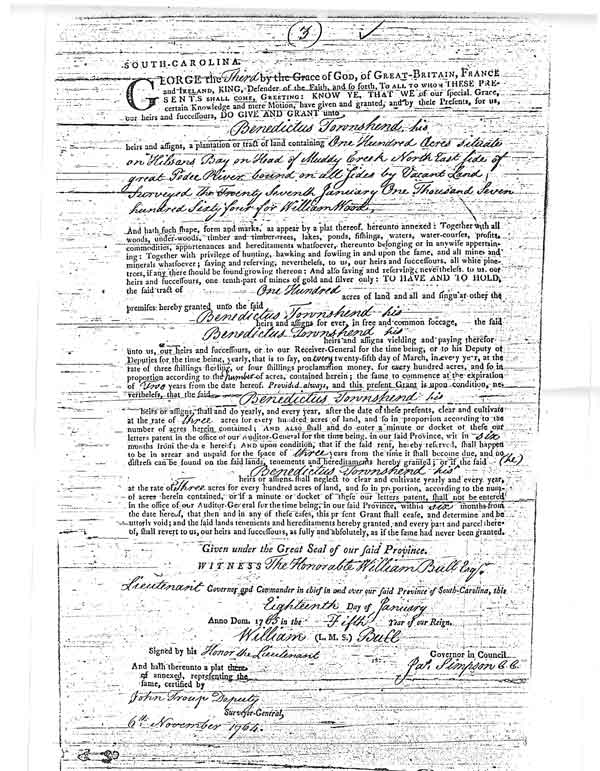 3
SOUTH-CAROLINA.
GEORGE the Third by the Grace of GOD, of GREAT-BRITAIN, FRANCE
and IRELAND, KING, Defender of the Faith, and so forth, TO ALL TO WHOM THESE PRE-
SENTS SHALL COME, GREETING: KNOW YE, THAT WE of our special Grace,
certain Knowledge and mere Motion, have given and granted, and by these Presents, for us,
our heirs and successours, DO GIVE AND GRANT unto
Benedictus Townshend, his
heirs and assigns, a plantation or tract of land containing One Hundred Acres situate
on Hilsans Bay on Head of Muddy Creek North East side of
great Pedee River bound on all sides by Vacant Land,
Surveyed the Twenty Seventh January One Thousand Seven
hundred Sixty four for William Wood,
And hath such shape, form and marks, as appear by a plat thereof, hereunto annexed: Together with all
woods, under-woods, timber and timber-trees, lakes, ponds, fishings, waters, water-courses, profits,
commodities, appurtenances and hereditaments whatsoever, thereunto belonging or in anywise appertain-
ing: Together with privilege of hunting, hawking and fowling in and upon the same, and all mines and
minerals whatsoever; saving and reserving, nevertheless, to us, our heirs and successours, all white pine-
trees, if any there should be found growing thereon: And also saving and reserving, nevertheless, to us, our
heirs and successours, one tenth-part of mines of gold and silver only: TO HAVE AND TO HOLD,
the said tract of One Hundred
acres of land and all and singular other the
premises hereby granted unto the said
Benedictus Townshend his
heirs and assigns for ever, in free and common soccage, the said
Benedictus Townshend his
heirs and assigns yielding and paying therefor
unto us, our heirs and successours, or to our Receiver-General for the time being, or to his Deputy or
Deputies for the time being, yearly, that is to say, on every twenty-fifth day of March, in every year, at the
rate of three shillings sterling, or four shillings proclamation money, for every hundred acres, and so in
proportion according to the number of acres, contained herein; the same to commence at the expiration
of Two years from the date hereof. Provided always, and this present Grant is upon condition, ne-
vertheless, that the said Benedictus Townshend his
heirs or assigns, shall and do yearly, and every year, after the date of these presents, clear and cultivate
at the rate of three acres for every hundred acres of land, and so in proportion according to the
number of acres herein contained; AND ALSO shall and do enter a minute or docket of these our
letters patent in the office of our Auditor-General for the time being, in our said Province, within six
months from the date hereof; AND upon condition, that if the said rent, hereby reserved, shall happen
to be in arrear and unpaid for the space of three years from the time it shall become due, and no
distress can be found on the said lands, tenements and hereditaments hereby granted; or if the said (he)
Benedictus Townshend his
heirs or assigns shall neglect to clear and cultivate yearly and every year,
at the rate of Three acres for every hundred acres of land, and so in proportion, according to the num-
of acres herein contained, or if a minute or docket of these our letters patent, shall not be entered
in the office of our Auditor-General for the time being, in our said Province, within six months from
the date hereof, that then and in any of these cases, this present Grant shall cease, and determine and be
utterly void; and the said lands tenements and hereditaments hereby granted, and every part and parcel there-
of, shall revert to us, our heirs and successours, as fully and absolutely, as if the same had never been granted.
Given under the Great Seal of our said Province.
WITNESS The Honorable William Bull Esqr.
Lieutenant Governor and Commander in chief in and over our said Province of South-Carolina, this
Eighteenth Day of January
Anno Dom. 1765 in the Fifth Year of our Reign.
William (L. M. S.) Bull
Signed by his Honor the Lieutenant Governor in Council
And hath thereunto a plat thereof Jas. Simpson C. C.
annexed, representing the
same, certified by
John Troup Deputy
Surveyor-General,
6th November 1764.